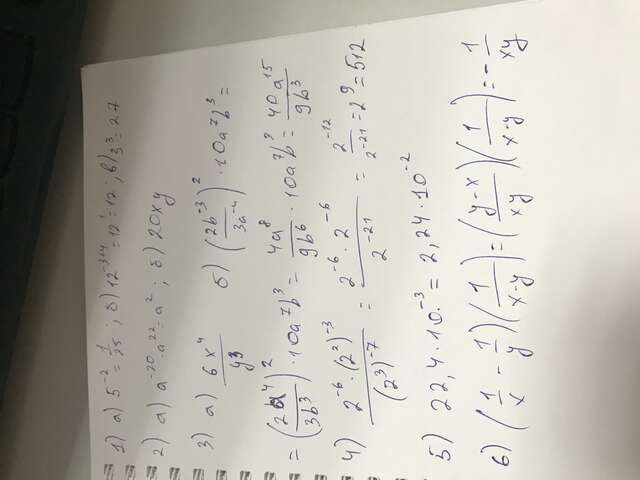 1) а) 5^{-2} = \frac{1}{25}; б) 12^{-3+4} = 12^1 = 12; в) 3^3 = 27
2) а) a^{-20} \cdot a^{22} = a^2; б) 20xy
3) а) \frac{6x^4}{y^3} б) \left(\frac{2b^{-3}}{3a^{-4}}\right)^2 \cdot 10a^7b^3 =
= \left(\frac{2a^4}{3b^3}\right)^2 \cdot 10a^7b^3 = \frac{4a^8}{9b^6} \cdot 10a^7b^3 = \frac{40a^{15}}{9b^3}
4) \frac{2^{-6} \cdot (2^2)^{-3}}{(2^3)^{-7}} = \frac{2^{-6} \cdot 2^{-6}}{2^{-21}} = \frac{2^{-12}}{2^{-21}} = 2^9 = 512
5) 22,4 \cdot 10^{-3} = 2,24 \cdot 10^{-2}
6) \left(\frac{1}{x} - \frac{1}{y}\right)\left(\frac{1}{x-y}\right) = \left(\frac{y-x}{xy}\right)\left(\frac{1}{x-y}\right) = -\frac{1}{xy}